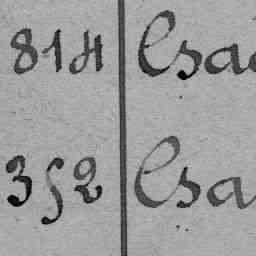 814 Csa
352 Csa